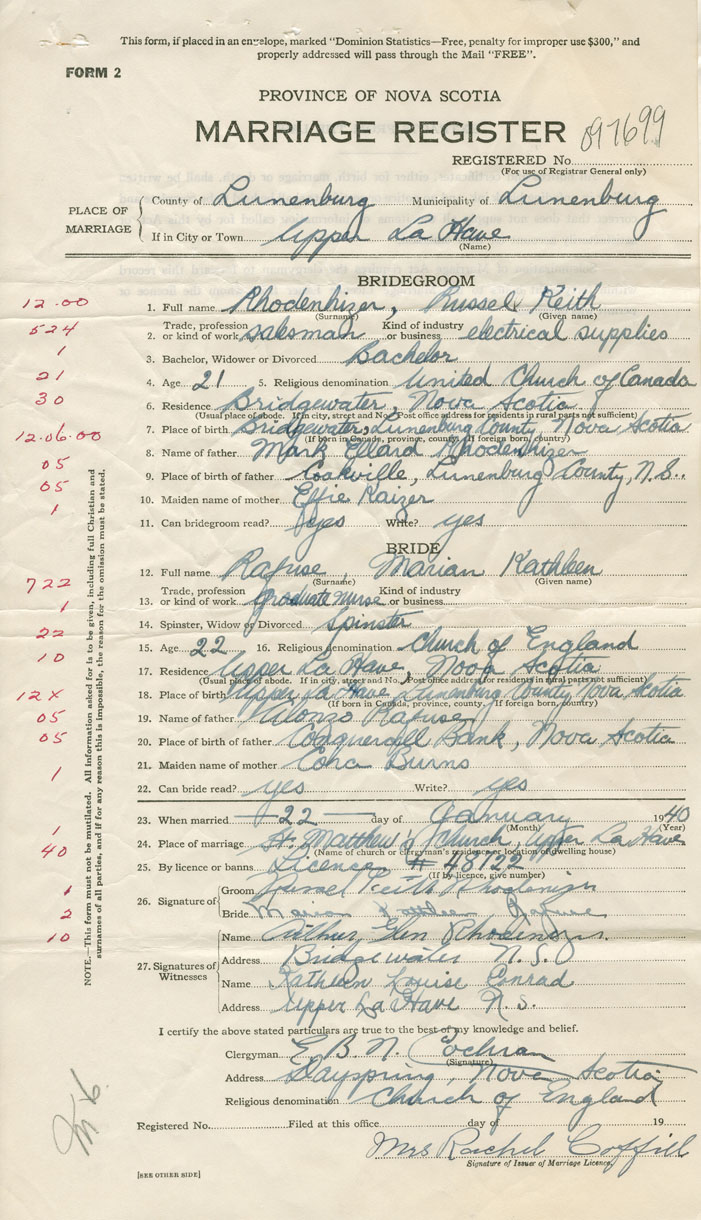 This form, if placed in an envelope, marked "Dominion Statistics—Free, penalty for improper use $300," and
properly addressed will pass through the Mail "FREE".
FORM 2
PROVINCE OF NOVA SCOTIA
MARRIAGE REGISTER 097699
REGISTERED No.
(For use of Registrar General only)
PLACE OF MARRIAGE
County of Lunenburg Municipality of Lunenburg
If in City or Town Upper La Have
(Name)
BRIDEGROOM
12.00 1. Full name Rhodenhizer, Russel Keith
(Surname) (Given name)
524 2. Trade, profession or kind of work salesman Kind of industry or business electrical supplies
1 3. Bachelor, Widower or Divorced Bachelor
21 4. Age 21 5. Religious denomination United Church of Canada
30 6. Residence Bridgewater, Nova Scotia
(Usual place of abode. If in city, street and No. Post office address for residents in rural parts not sufficient)
12.06.00 7. Place of birth Bridgewater, Lunenburg County, Nova Scotia
(If born in Canada, province, county. If foreign born, country)
05 8. Name of father Mark Ellard Rhodenhizer
05 9. Place of birth of father Cookville, Lunenburg County, N.S.
1 10. Maiden name of mother Effie Raizer
11. Can bridegroom read? yes Write? yes
BRIDE
12. Full name Rafuse, Marian Kathleen
(Surname) (Given name)
722 13. Trade, profession or kind of work graduate nurse Kind of industry or business
1 14. Spinster, Widow or Divorced Spinster
22 15. Age 22 16. Religious denomination Church of England
10 17. Residence Upper La Have, Nova Scotia
(Usual place of abode. If in city, street and No. Post office address for residents in rural parts not sufficient)
12X 18. Place of birth Upper La Have Lunenburg County Nova Scotia
(If born in Canada, province, county. If foreign born, country)
05 19. Name of father Alonzo Rafuse
05 20. Place of birth of father Bank, Nova Scotia
1 21. Maiden name of mother Cora Burns
22. Can bride read? yes Write? yes
1 23. When married 22 day of January 1940
(Month) (Year)
40 24. Place of marriage St. Matthew's Church, Upper La Have
(Name of church or clergyman's residence or location of dwelling house)
25. By licence or banns Licence # 48122
(If by licence, give number)
1 26. Signature of Groom Russel Keith Rhodenizer
2 Bride Marian Kathleen Rafuse
10 27. Signatures of Witnesses Name Arthur Glen
Address Bridgewater N.S.
Name Kathleen Louise Conrad
Address Upper La Have N.S.
I certify the above stated particulars are true to the best of my knowledge and belief.
Clergyman E. B. N. Cochran
(Signature)
Address Dayspring, Nova Scotia
Religious denomination Church of England
Registered No. Filed at this office day of 19
Mrs Rachel Coffill
Signature of Issuer of Marriage Licence.
[SEE OTHER SIDE]
NOTE.—This form must not be mutilated. All information asked for is to be given, including full Christian and
surnames of all parties, and if for any reason this is impossible, the reason for the omission must be stated.